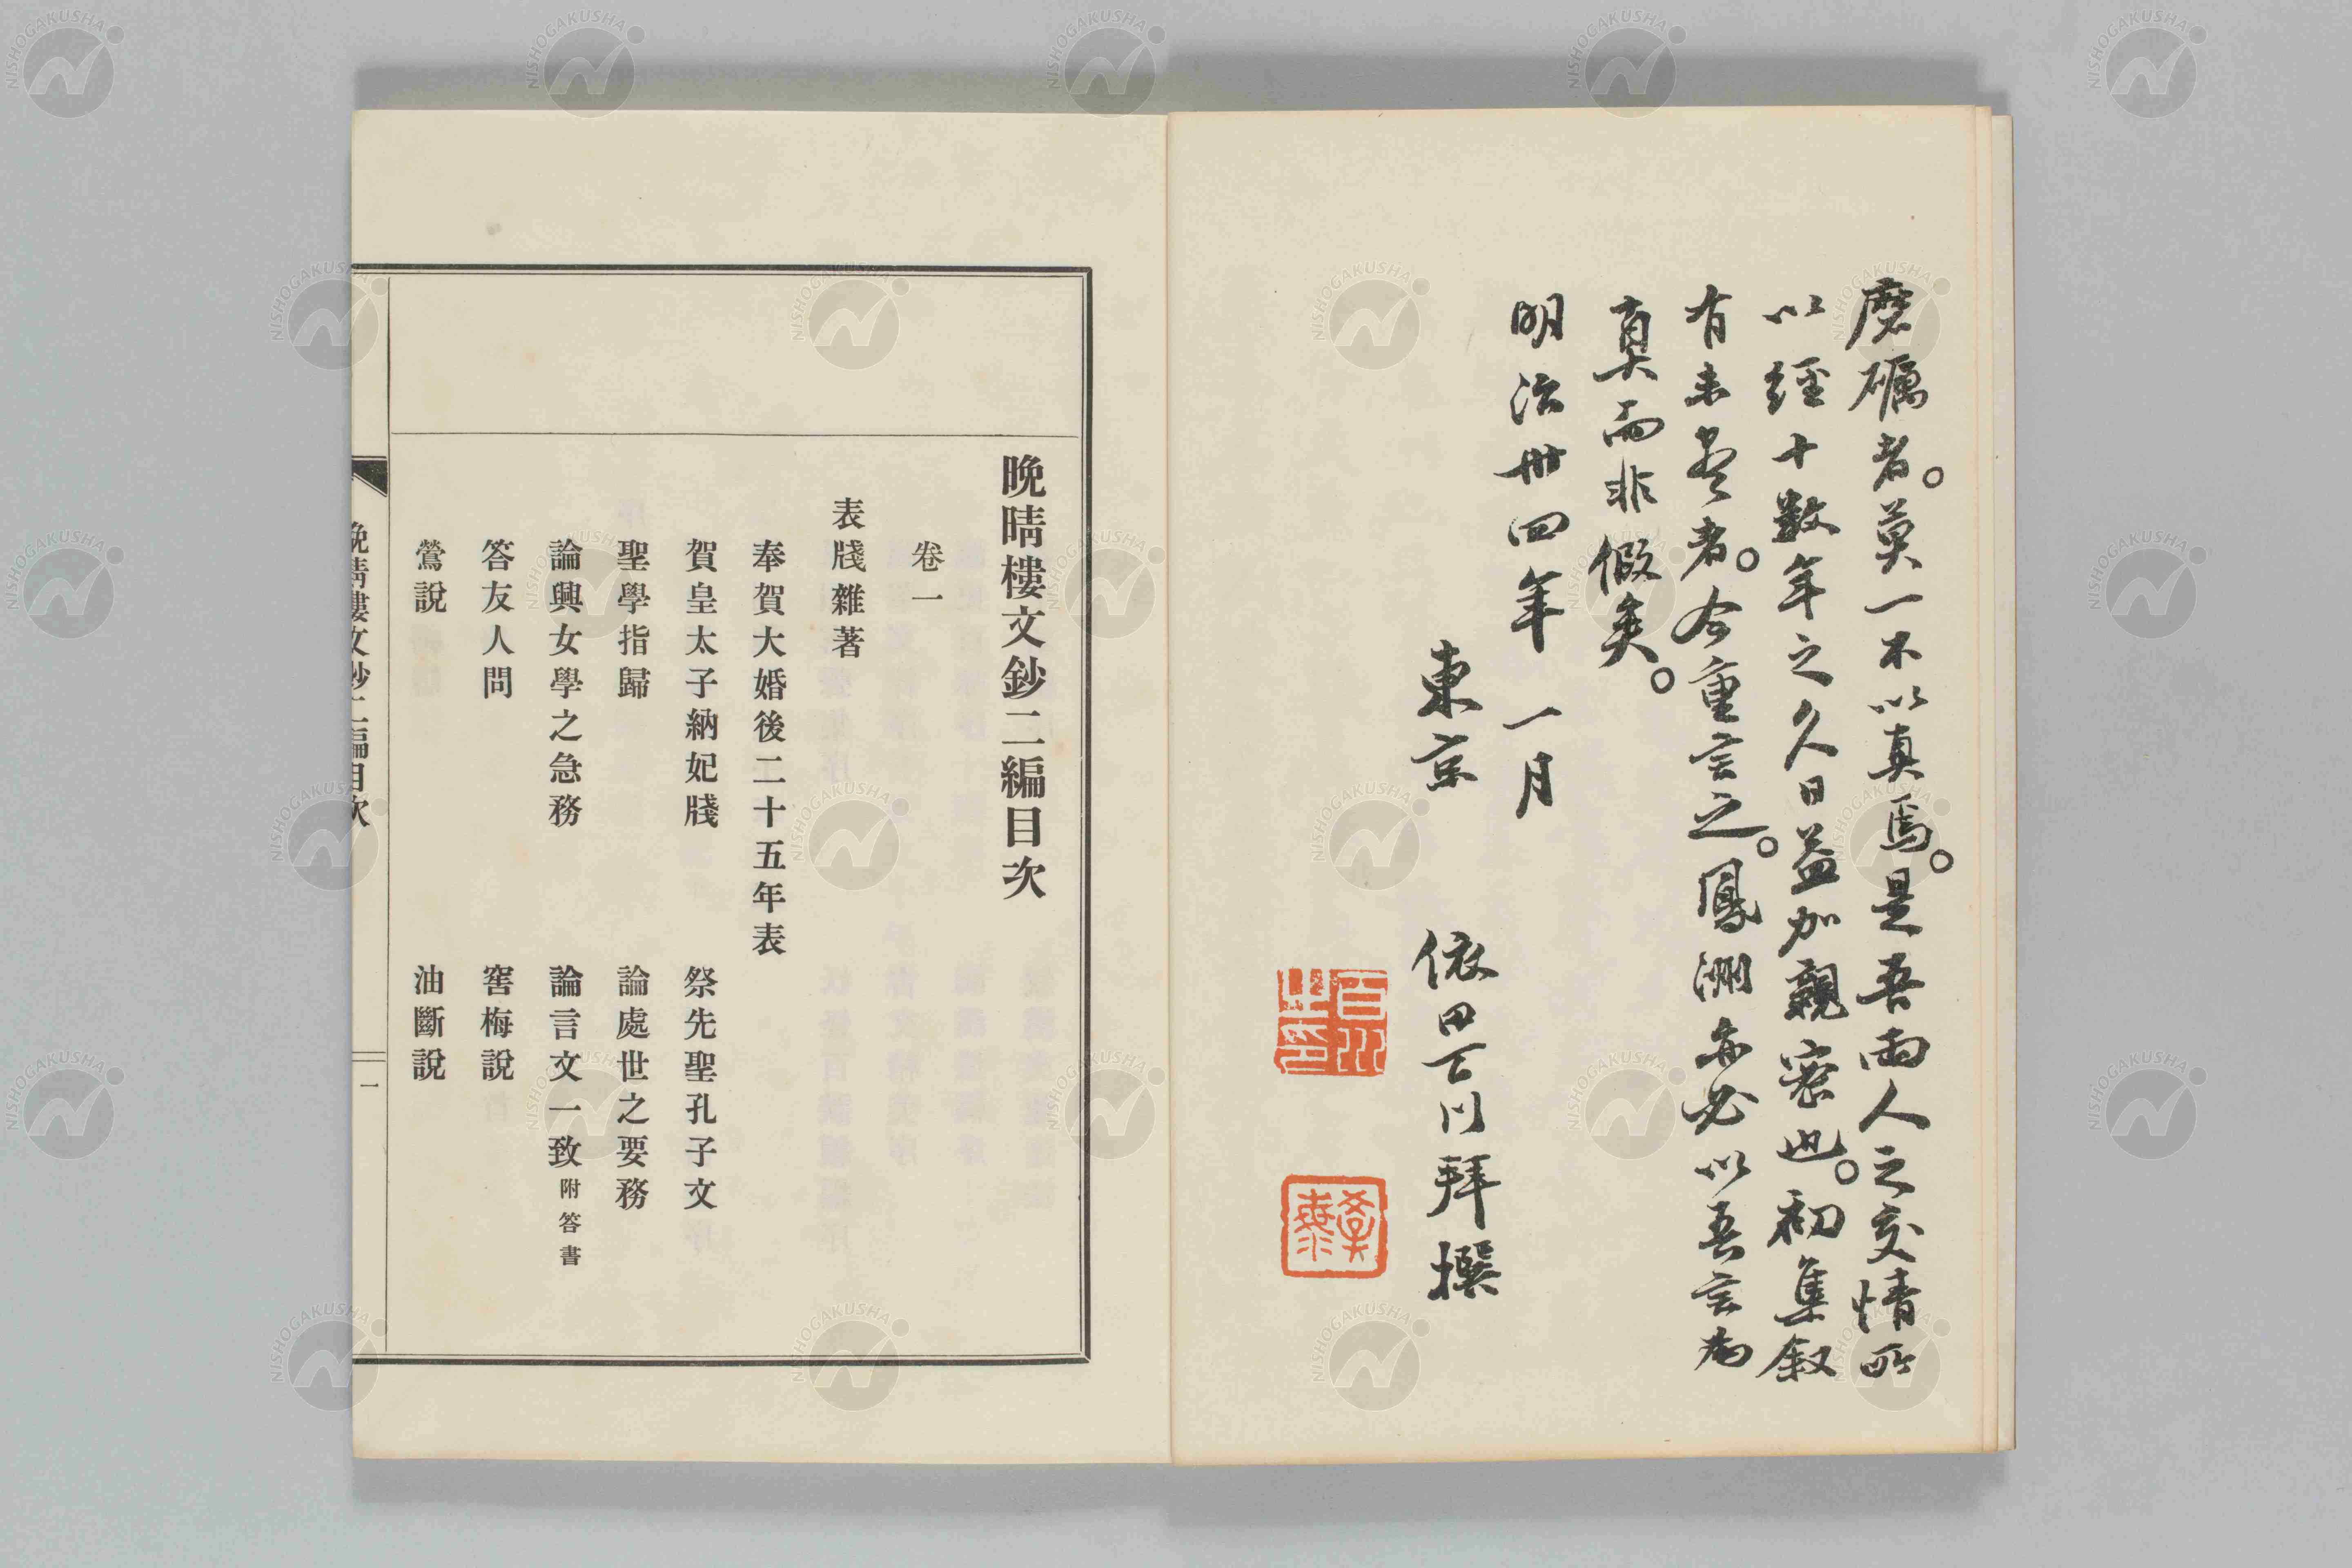 磨礪者。莫一不以真焉。是吾兩人之交情所
以經十數年之久日益加親密也。初集叙
有未尽者。今重言之。鳳洲亦必以吾言為
真而非假矣。
明治卅四年一月
東京 依田百川拜撰
百川之印
晩晴樓文鈔二編目次
卷一
表牋雜著
奉賀大婚後二十五年表
賀皇太子納妃牋 祭先聖孔子文
聖學指歸 論處世之要務
論興女學之急務 論言文一致附答書
答友人問 窖梅說
鶯說 油斷說
晩晴樓文鈔二編目次 一
NISHOGAKUSHA